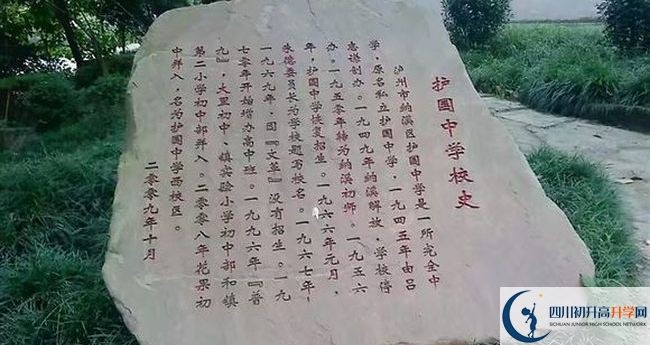 护国中学校史
泸州市纳溪区护国中学是一所完全中
学，原名私立护国中学，一九四五年由吕
志谌创办。一九四九年纳溪解放，学校停
办。一九五零年转为纳溪初师。一九五六
年，护国中学恢复招生。一九六六年元月，
朱德委员长为学校题写校名。一九六七年，
一九六九年，因『文革』没有招生。一九
七零年开始增办高中班。一九九六年『普
九』，大里初中、镇实验小学初中部和镇
第二小学初中部并入。二零零八年花果初
中并入，名为护国中学西校区。
二零零九年十月
四川初升高升学网
SICHUAN JUNIOR HIGH SCHOOL NETWORK